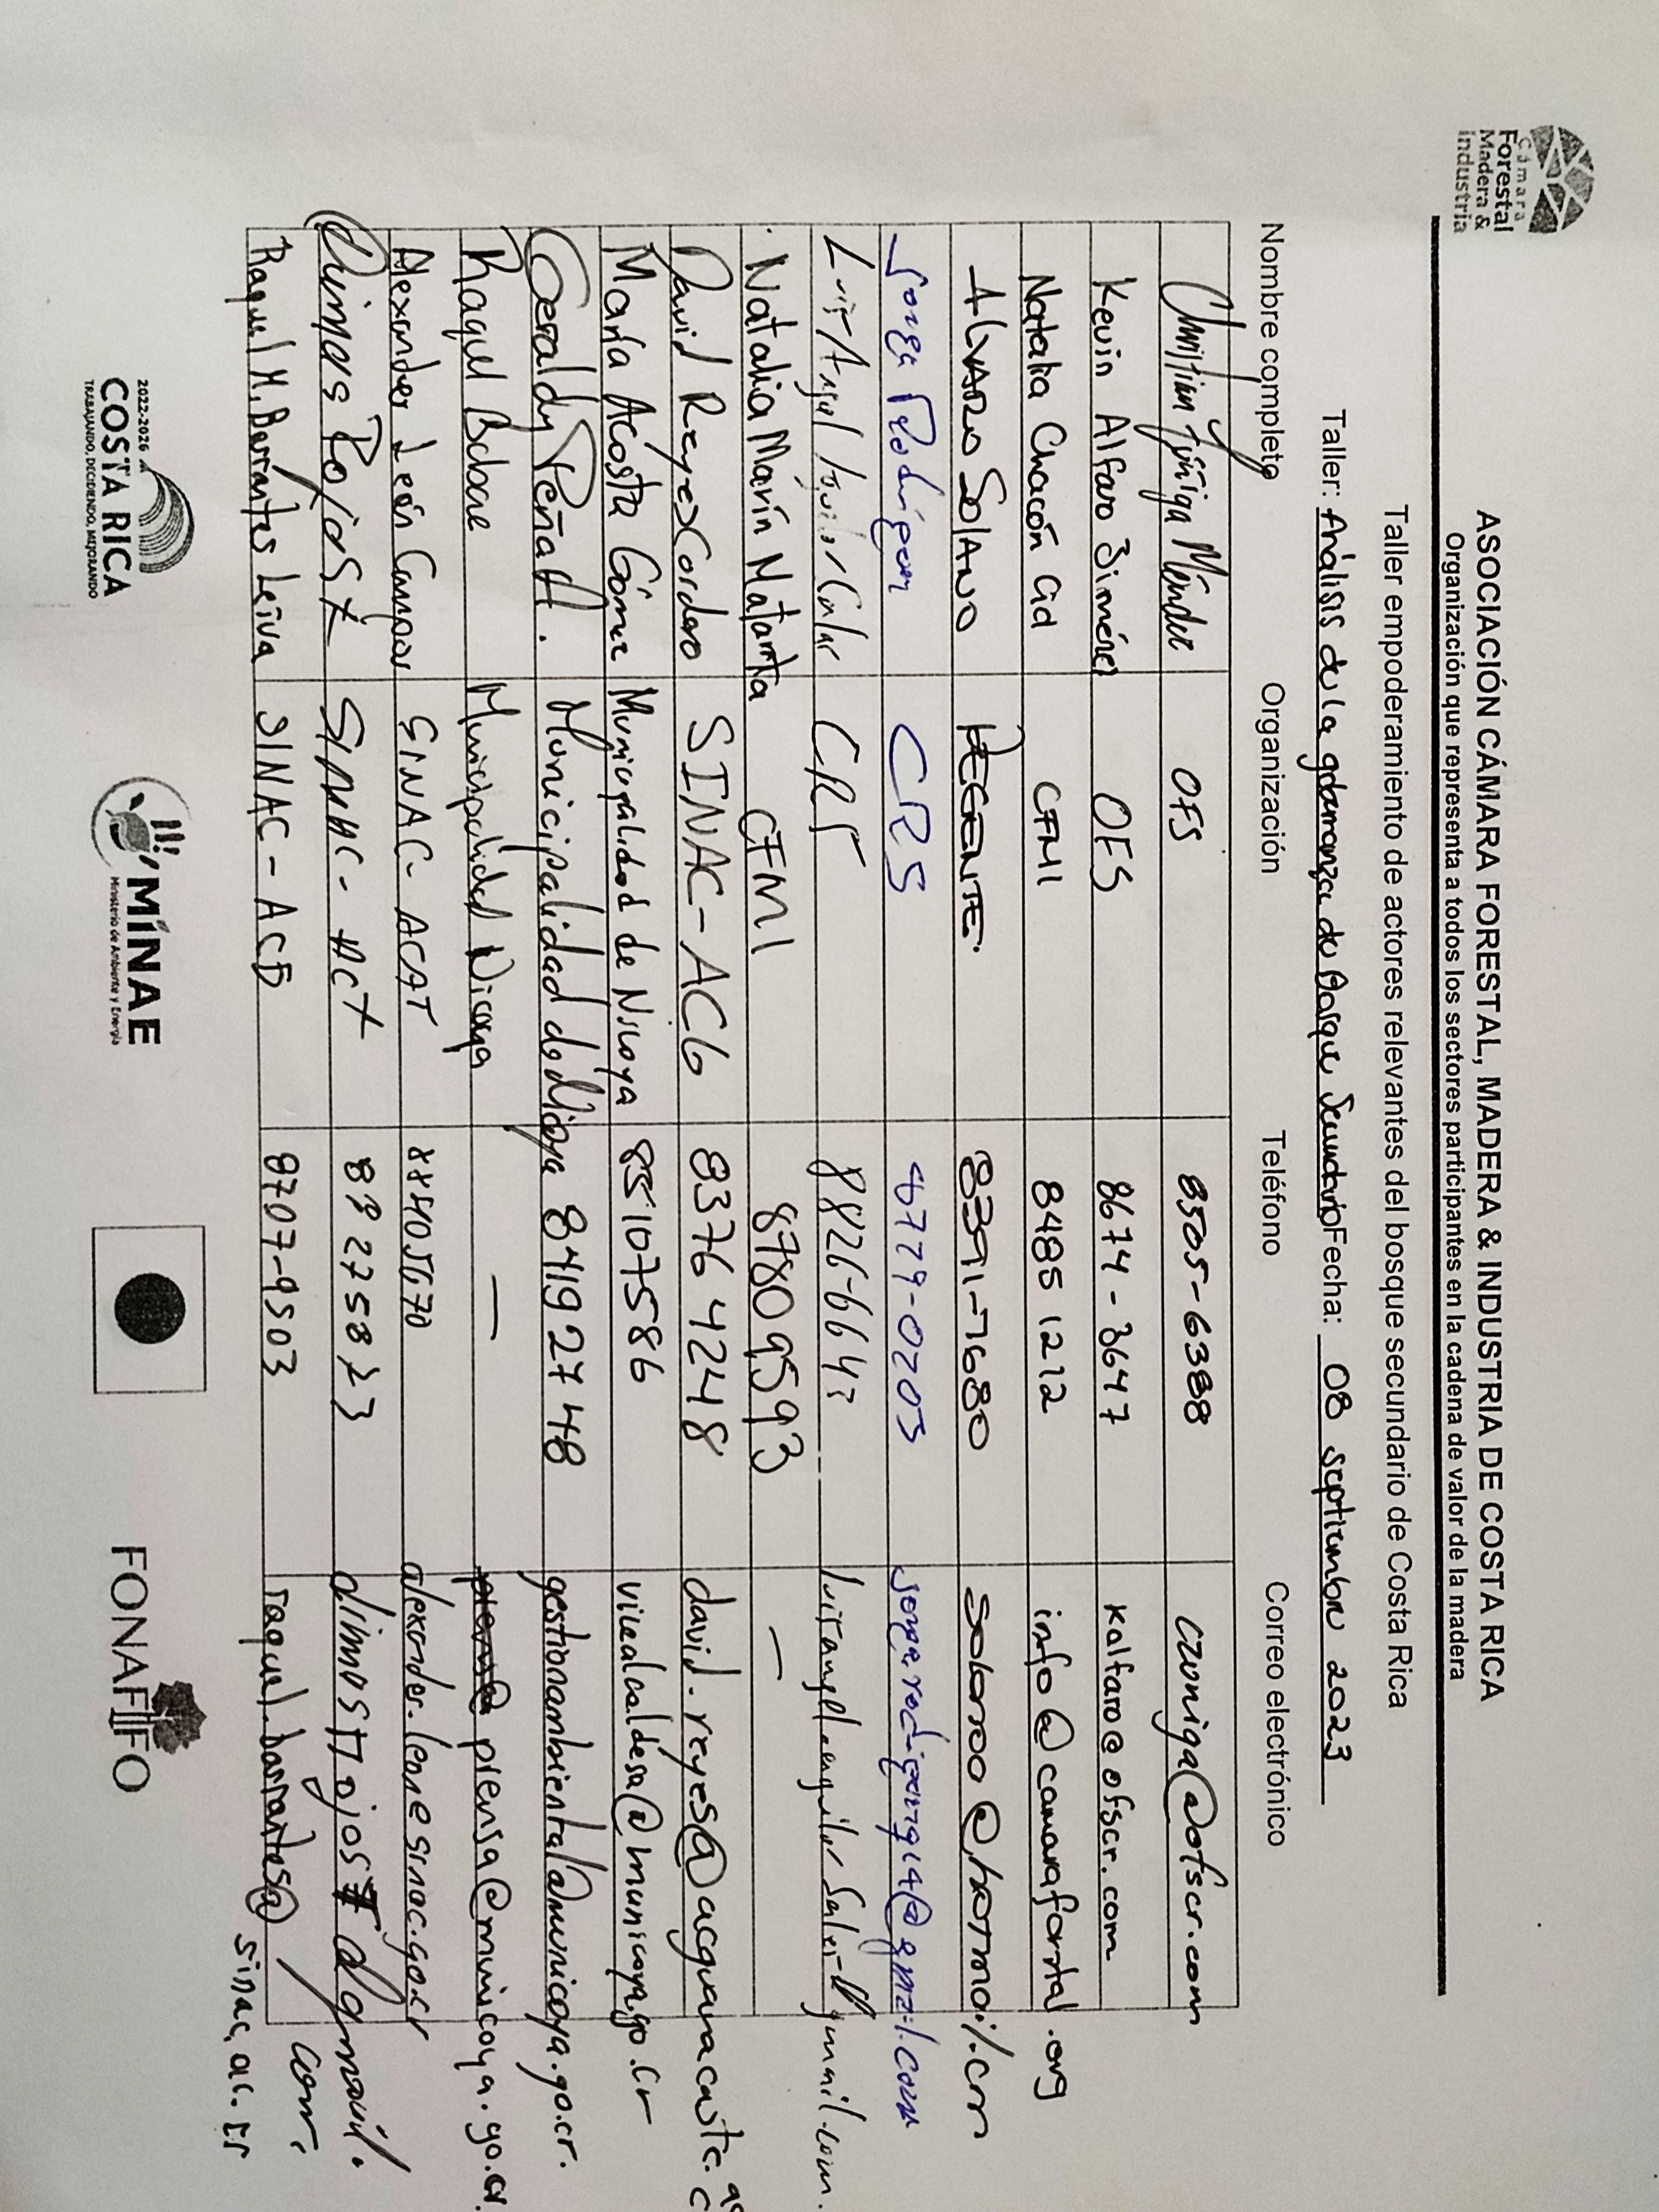 Cámara
Forestal
Madera &
industria
ASOCIACIÓN CÁMARA FORESTAL, MADERA & INDUSTRIA DE COSTA RICA
Organización que representa a todos los sectores participantes en la cadena de valor de la madera
Taller empoderamiento de actores relevantes del bosque secundario de Costa Rica
Taller: Análisis de la gobernanza de Bosque Secundario Fecha: 08 septiembre 2023
Nombre completo Organización Teléfono Correo electrónico
Christian Zúñiga Méndez OFS 8505-6388 czuniga@ofscr.com
Kevin Alfaro Jiménez OFS 8674-3647 kalfaro@ofscr.com
Natalia Chacón Cid CFMI 8485 1212 info@camaraforestal.org
ALVARO SOLANO REGENTE. 8391-7680 solaroo@hotmail.com
Jorge Rodríguez CRS 8779-0203
Luis Angel CRS 8826-6643
Natalia Marín Matarrita CFMI 87809593 —
David Reyes Cordero SINAC-ACG 8376 4248 david.reyes@acguanacaste.ac
María Acosta Gómez Municipalidad de Nicoya 85107586 vicealcaldesa@municoya.go.cr
Geraldy Peña H. Municipalidad de Nicoya 84192748 gestionambiental@municoya.go.cr.
Raquel Municipalidad Nicoya — prensa@municoya.go.cr.
Alexander León Campos SINAC-ACAT 88405670
Dimas Rojas SINAC-ACT
Raquel M. Barrantes Leiva SINAC-ACD 8707-9503 raquel.barrantes@
sinac.ac.cr
2022-2026
COSTA RICA
TRABAJANDO, DECIDIENDO, MEJORANDO
MINAE
Ministerio de Ambiente y Energía
FONAFIFO